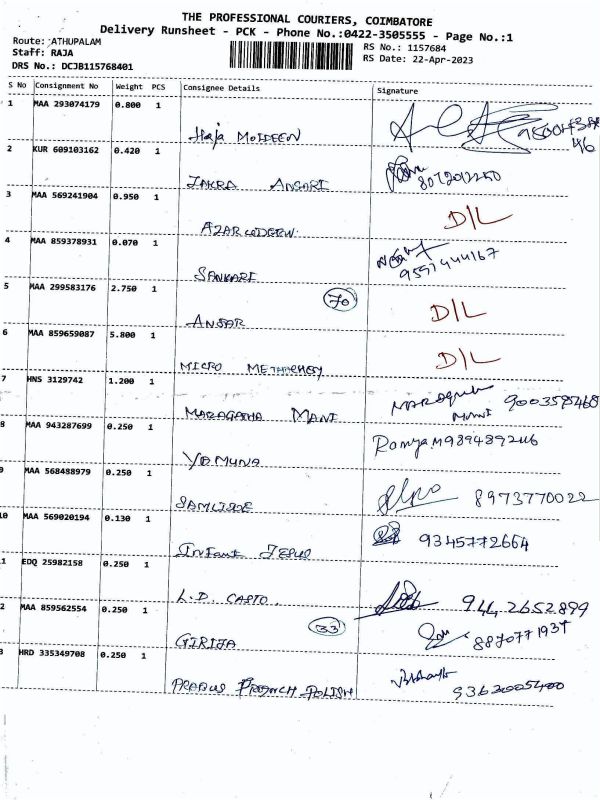 THE PROFESSIONAL COURIERS, COIMBATORE
Delivery Runsheet - PCK - Phone No.:0422-3505555 - Page No.:1
Route: ATHUPALAM
Staff: RAJA
DRS No.: DCJB115768401
RS No.: 1157684
RS Date: 22-Apr-2023
S No Consignment No Weight PCS Consignee Details Signature
1 MAA 293074179 0.800 1
Haja MOIDEEN
2 KUR 609103162 0.420 1
ANSARI 8072012250
3 MAA 569241904 0.950 1
D/L
4 MAA 859378931 0.070 1
SANKARI 9597444167
5 MAA 299583176 2.750 1
70
ANSAR D/L
6 MAA 859659087 5.800 1
MICRO D/L
7 HNS 3129742 1.200 1
MARAGATHA MANI 9003595468
8 MAA 943287699 0.250 1
YAMUNA Ramya.M 989489246
9 MAA 568488979 0.250 1
8973770022
10 MAA 569020194 0.130 1
Infant JESUS 9345772664
1 EDQ 25982158 0.250 1
L.D. CASTO. 9442652899
2 MAA 859562554 0.250 1
33
GIRIJA 8870771937
3 HRD 335349708 0.250 1
FRENCH POLISH 9362005400